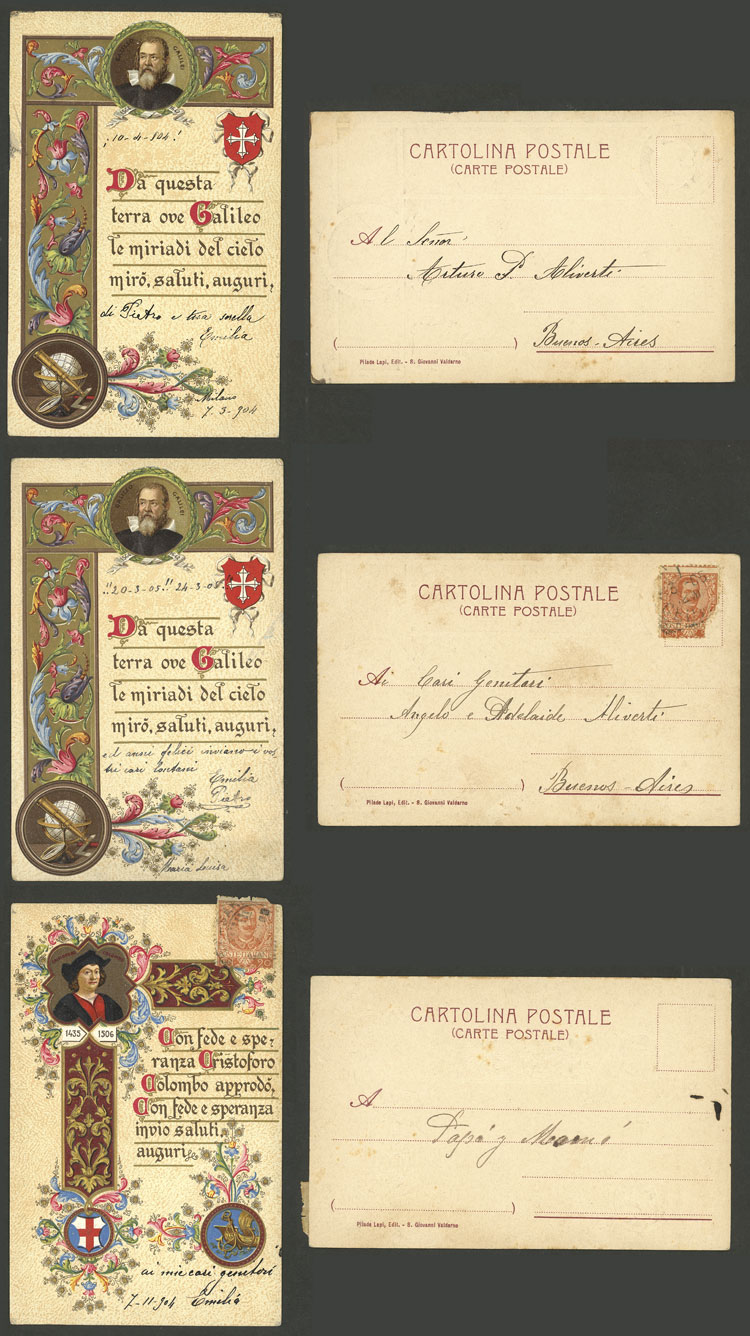 GALILEO GALILEI
¡10-4-804!
Da questa
terra ove Galileo
le miriadi del cielo
mirō, saluti, auguri,
di Pietro e tua sorella
Emilia
Milano
7-3-904
CARTOLINA POSTALE
(CARTE POSTALE)
Al Señor
Arturo P. Aliverti
( )
Buenos-Aires
Pilade Lapi, Edit. - S. Giovanni Valdarno
GALILEO GALILEI
!!20-3-05!! 24-3-05!!
Da questa
terra ove Galileo
le miriadi del cielo
mirō, saluti, auguri,
ed anni felici inviano i vos
tri cari lontani
Emilia
Pietro
Maria Luisa
CARTOLINA POSTALE
(CARTE POSTALE)
Ai Cari Genitori
Angelo e Adelaide Aliverti
( )
Buenos-Aires
Pilade Lapi, Edit. - S. Giovanni Valdarno
POSTE ITALIANE
1435 1506
Con fede e spe-
ranza Cristoforo
Colombo approdō,
Con fede e speranza
invio saluti,
auguri
ai miei cari genitori
7-11-904 Emilia
CARTOLINA POSTALE
(CARTE POSTALE)
A
Papá y Mamá
( )
Pilade Lapi, Edit. - S. Giovanni Valdarno